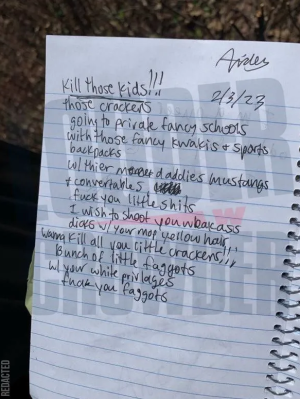 Aiden
Kill those kids!!!
2/3/23
those crackers
going to private fancy schools
with those fancy kwakis + sports
backpacks
w/ thier daddies mustangs
+ convertables
fuck you little shits
I wish to shoot you weakass
dicks w/ your mop yellow hair
wanna kill all you little crackers!!!
Bunch of little faggots
w/ your white privlages
fuck you faggots
LOUDER
CROWDER
REDACTED